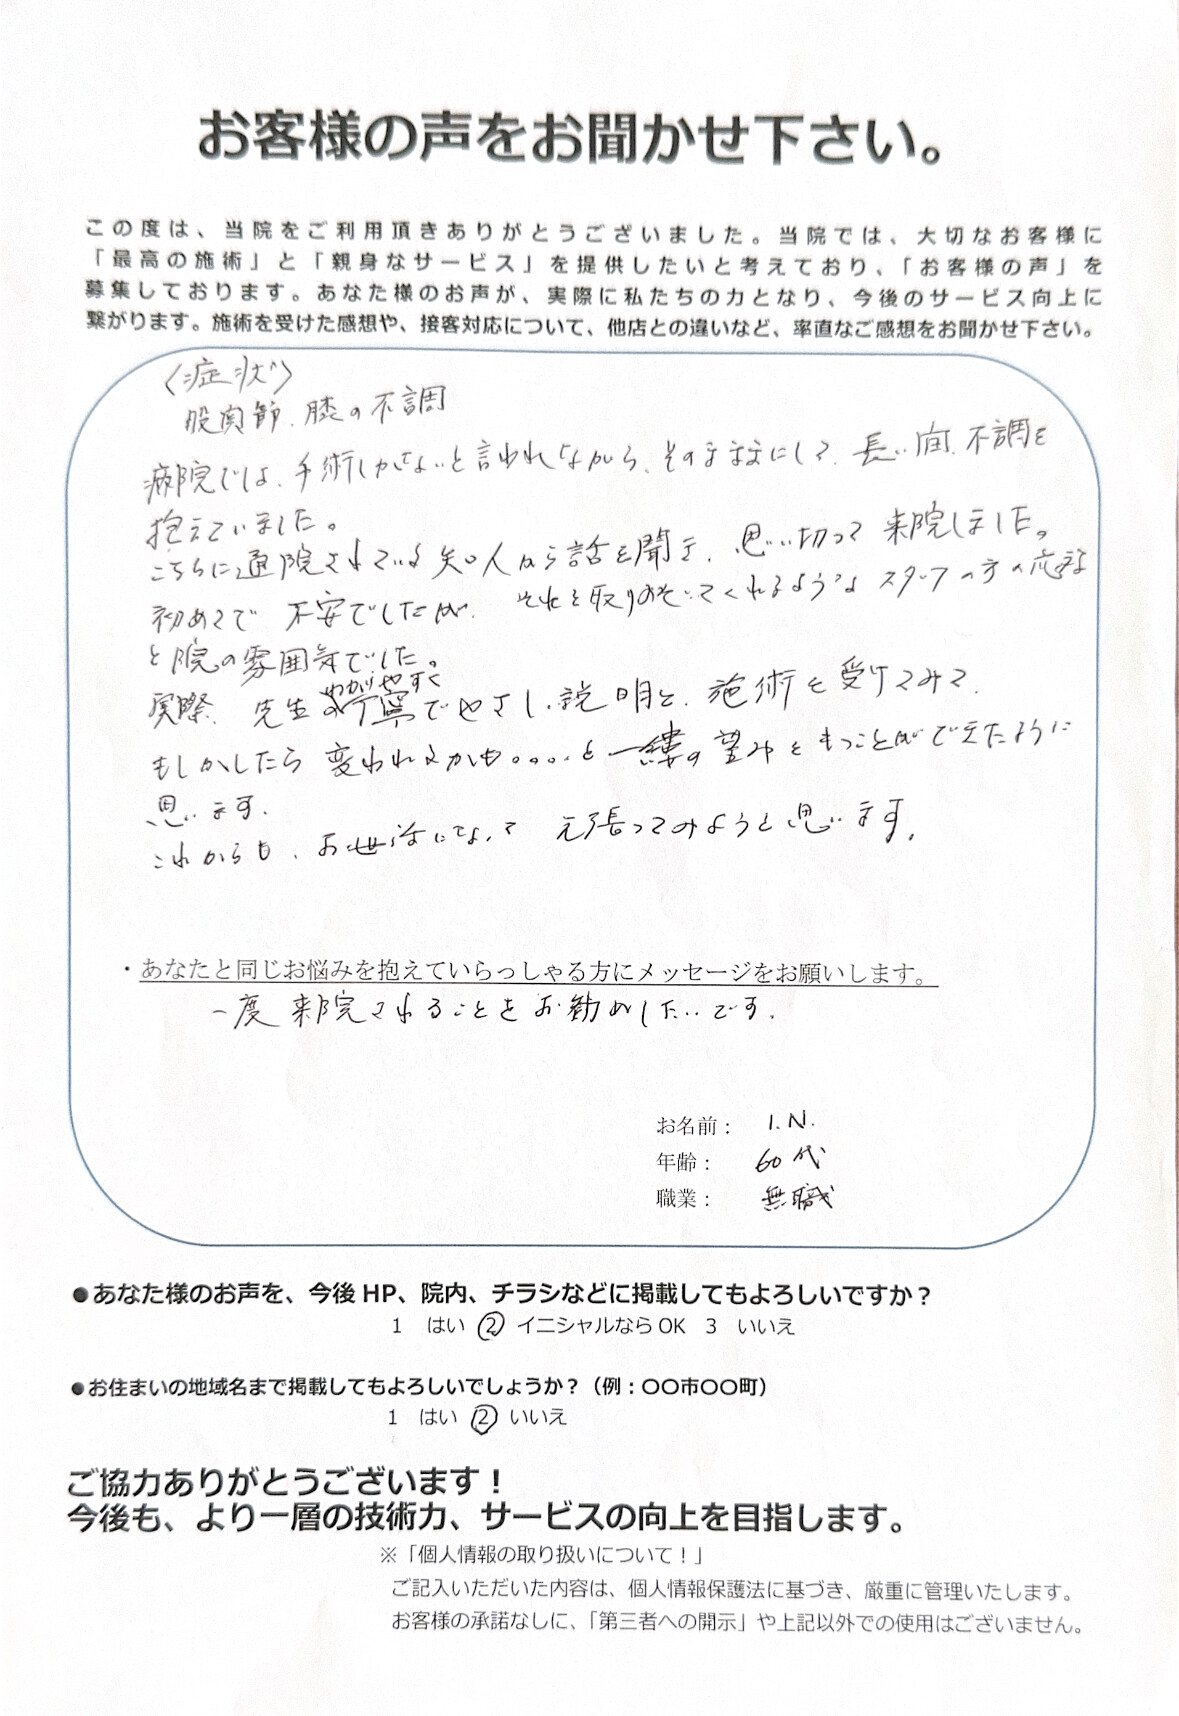 お客様の声をお聞かせ下さい。
この度は、当院をご利用頂きありがとうございました。当院では、大切なお客様に
「最高の施術」と「親身なサービス」を提供したいと考えており、「お客様の声」を
募集しております。あなた様のお声が、実際に私たちの力となり、今後のサービス向上に
繋がります。施術を受けた感想や、接客対応について、他店との違いなど、率直なご感想をお聞かせ下さい。
〈症状〉
股関節、膝の不調
病院では、手術しかないと言われながら、そのままにして、長い間、不調を
抱えていました。
こちらに通院されている知人から話を聞き、思い切って来院しました。
初めてで不安でしたが、それを取りのぞいてくれるようなスタッフの方の応対
と院の雰囲気でした。
わかりやすく
実際、先生の丁寧でやさしい説明と、施術を受けてみて、
もしかしたら変われるかも。。。。と一縷の望みをもつことができたように
思います。
これからも、お世話になって元張ってみようと思います。
・あなたと同じお悩みを抱えていらっしゃる方にメッセージをお願いします。
一度来院されることをお勧めしたいです。
お名前： I.N.
年齢： 60代
職業： 無職
●あなた様のお声を、今後 HP、院内、チラシなどに掲載してもよろしいですか？
1 はい ② イニシャルなら OK 3 いいえ
●お住まいの地域名まで掲載してもよろしいでしょうか？（例：〇〇市〇〇町）
1 はい ② いいえ
ご協力ありがとうございます！
今後も、より一層の技術力、サービスの向上を目指します。
※「個人情報の取り扱いについて！」
ご記入いただいた内容は、個人情報保護法に基づき、厳重に管理いたします。
お客様の承諾なしに、「第三者への開示」や上記以外での使用はございません。